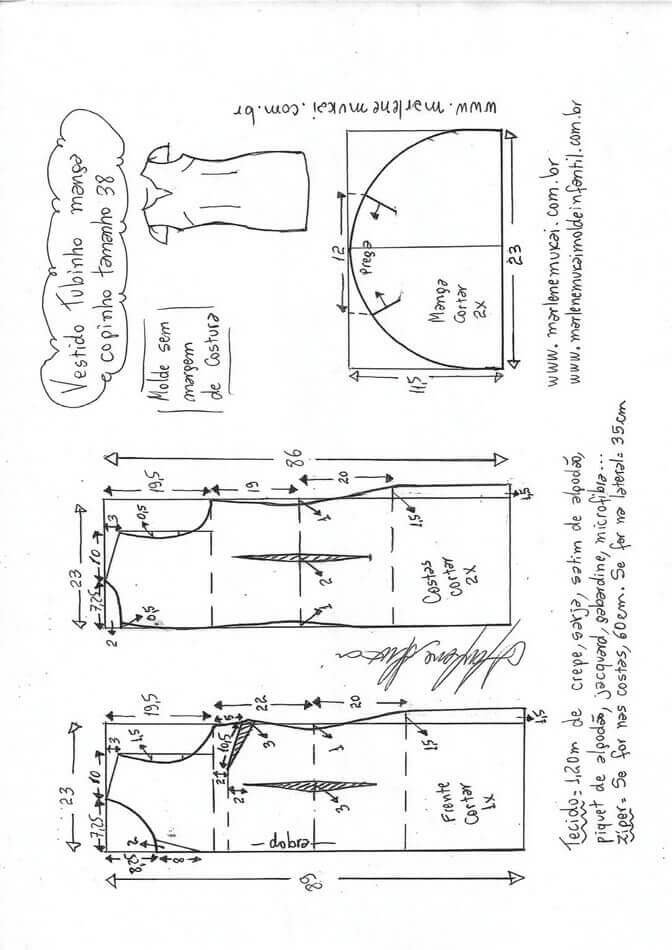 Vestido Tubinho manga
e copinho tamanho 38
Molde sem
margem
de Costura
www.marlenemukai.com.br
12
Prega
Manga
Cortar
2x
11,5
23
www.marlenemukai.com.br
www.marlenemukaimoldeinfantil.com.br
86
19,5
19
20
3
10
23
7,25
2
0,5
0,5
2
1
1
1,5
1,5
Costas
cortar
2x
89
19,5
22
20
3
10
23
7,25
1,5
5
10,5
3
2
2
3
1
1,5
1,5
2
8,5
8
dobra
Frente
Cortar
1x
Tecido = 1,20m de crepe, sarja, satim de algodão,
piquet de algodão, jacquard, gabardine, microfibra...
Zíper = Se for nas costas, 60cm. Se for na lateral = 35cm